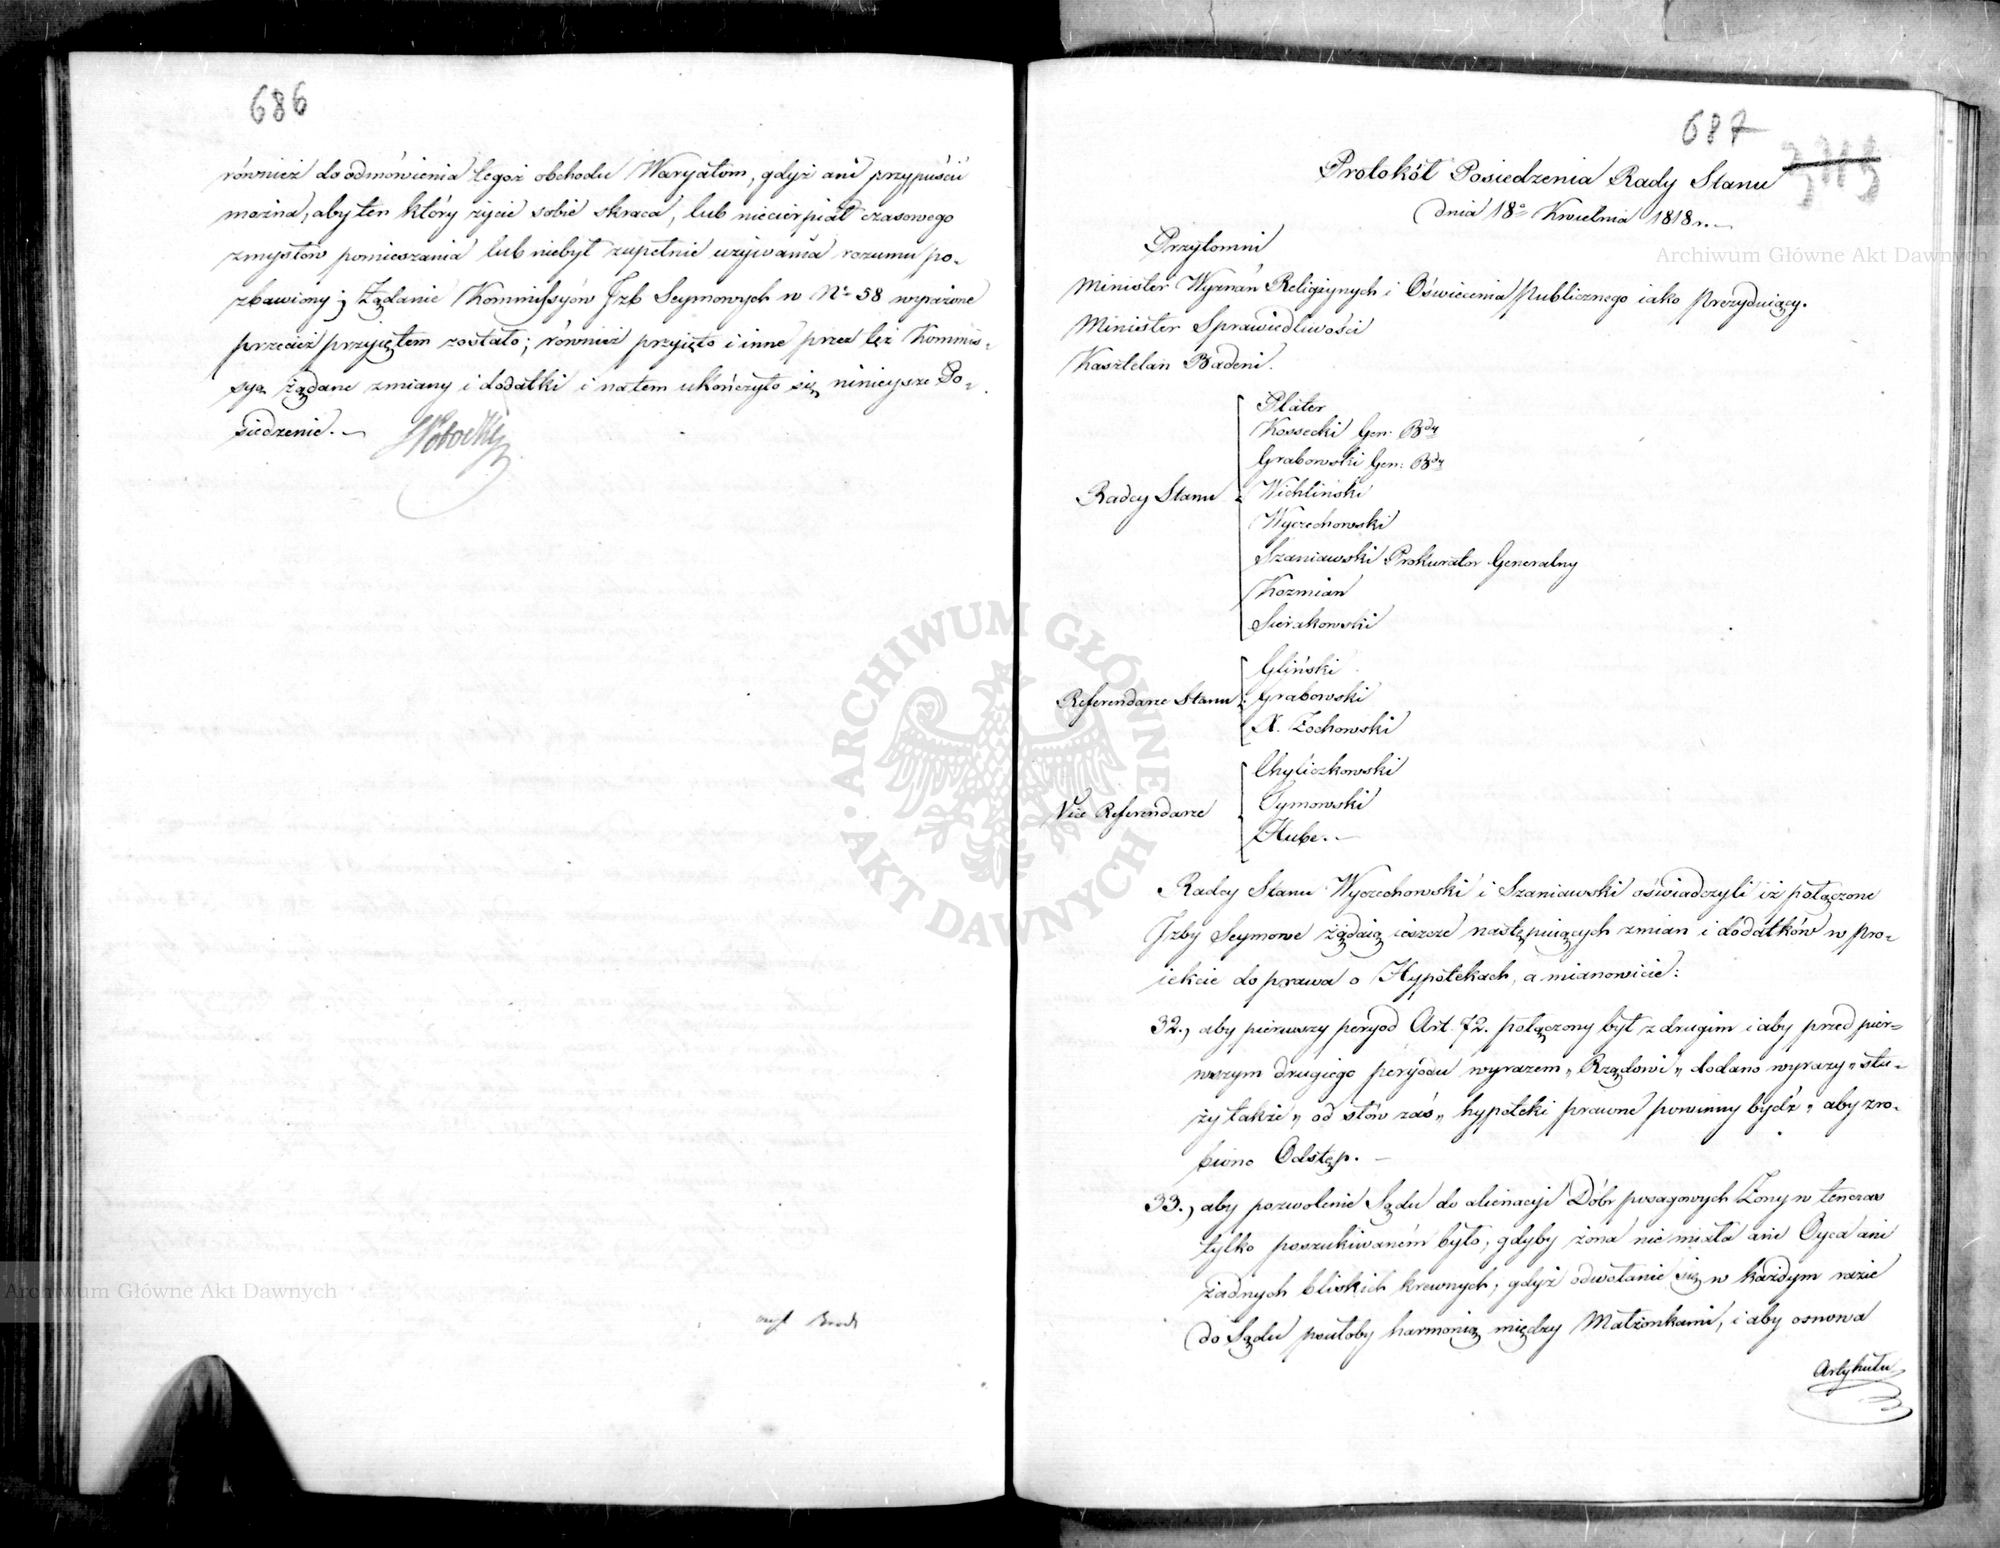 686
również do odmówienia tegoż obchodu Waryatom, gdyż ani przypuścić
można, aby ten który życie sobie skraca, lub niecierpiał czasowego
zmysłów pomieszania lub niebył zupełnie używania rozumu po-
zbawiony; Żądanie Kommissyów Jzb Seymowych w No 58 wyrażone
przecież przyiętem zostało; również przyięto i inne przez też Kommis-
sye żądane zmiany i dodatki i na tem ukończyło się ninieysze Po-
siedzenie. —
Potocki
687
Protokół Posiedzenia Rady Stanu
dnia 18o Kwietnia 1818 r. —
Przytomni
Minister Wyznań Religiynych i Oświecenia Publicznego iako Prezyduiący.
Minister Sprawiedliwości
Kasztelan Badeni.
Radcy Stanu
Plater
Kossecki Gen. Bdy
Grabowski Gen: Bdy
Wichliński
Wyczechowski
Szaniawski Prokurator Generalny
Kozmian
Sierakowski
Referendarze Stanu
Gliński
Grabowski
X. Żochowski
Vice Referendarze
Chyliczkowski
Tymowski
Hube. —
Radcy Stanu Wyczechowski i Szaniawski oświadczyli iż połączone
Jzby Seymowe żądaią ieszcze następuiących zmian i dodatków w pro-
iekcie do prawa o Hypotekach, a mianowicie:
32., aby pierwszy peryod Art. 72. połączony był z drugim i aby przed pier-
wszym drugiego peryodu wyrazem „Rządowi„ dodano wyrazy „słu-
ży także„ od słów zaś „hypoteki prawne powinny bydź„ aby zro-
biono Odstęp. —
33., aby pozwolenie Sądu do alienacyi Dóbr posagowych Żony w tenczas
tylko poszukiwaném było, gdyby żona nie miała ani Oyca ani
żadnych bliskich krewnych; gdyż odwołanie się w każdym razie
do Sądu psułoby harmonią między Małżonkami, i aby osnowa
Artykułu
Archiwum Główne Akt Dawnych
Archiwum Główne Akt Dawnych
ARCHIWUM GŁÓWNE AKT DAWNYCH